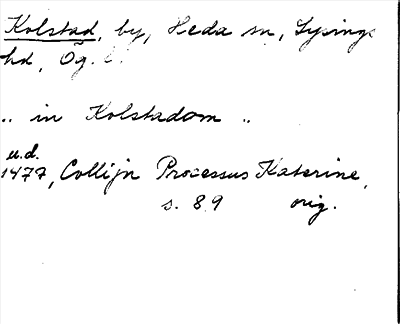 Kolstad, by, Heda sn, Lysings
hd, Ög.
„ in Kolstadom „
u.d.
1477, Collijn Processus Katerine,
s. 89 orig.